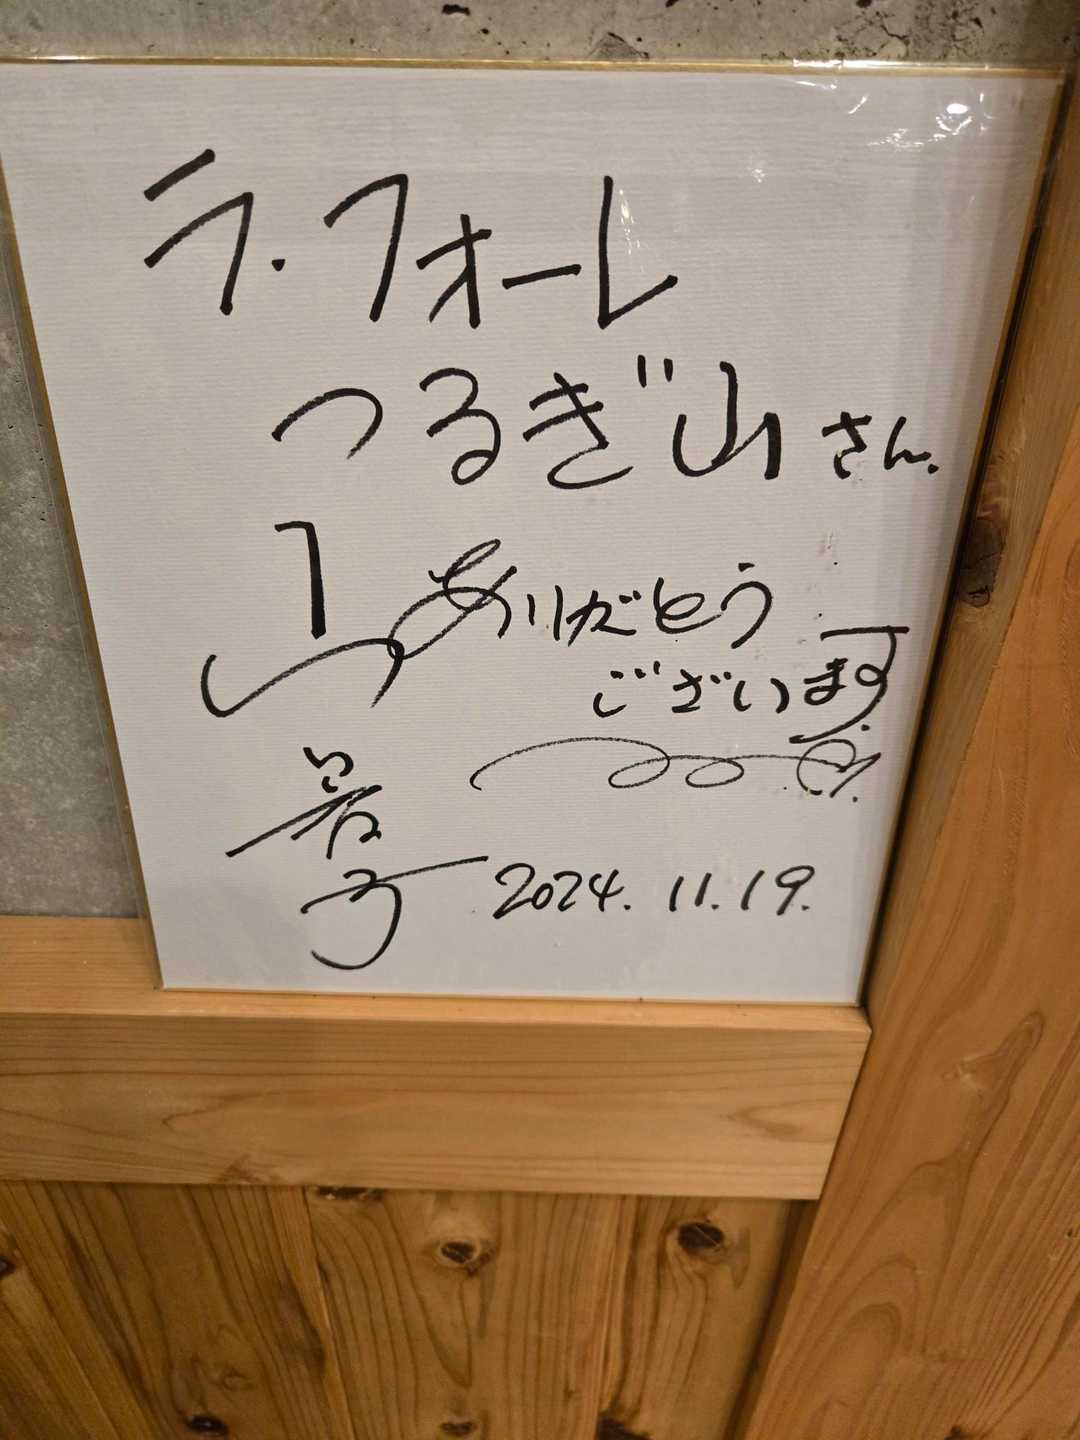 ラ・フォーレ
つるぎ山さん.
ありがとう
ございます.
2024.11.19.